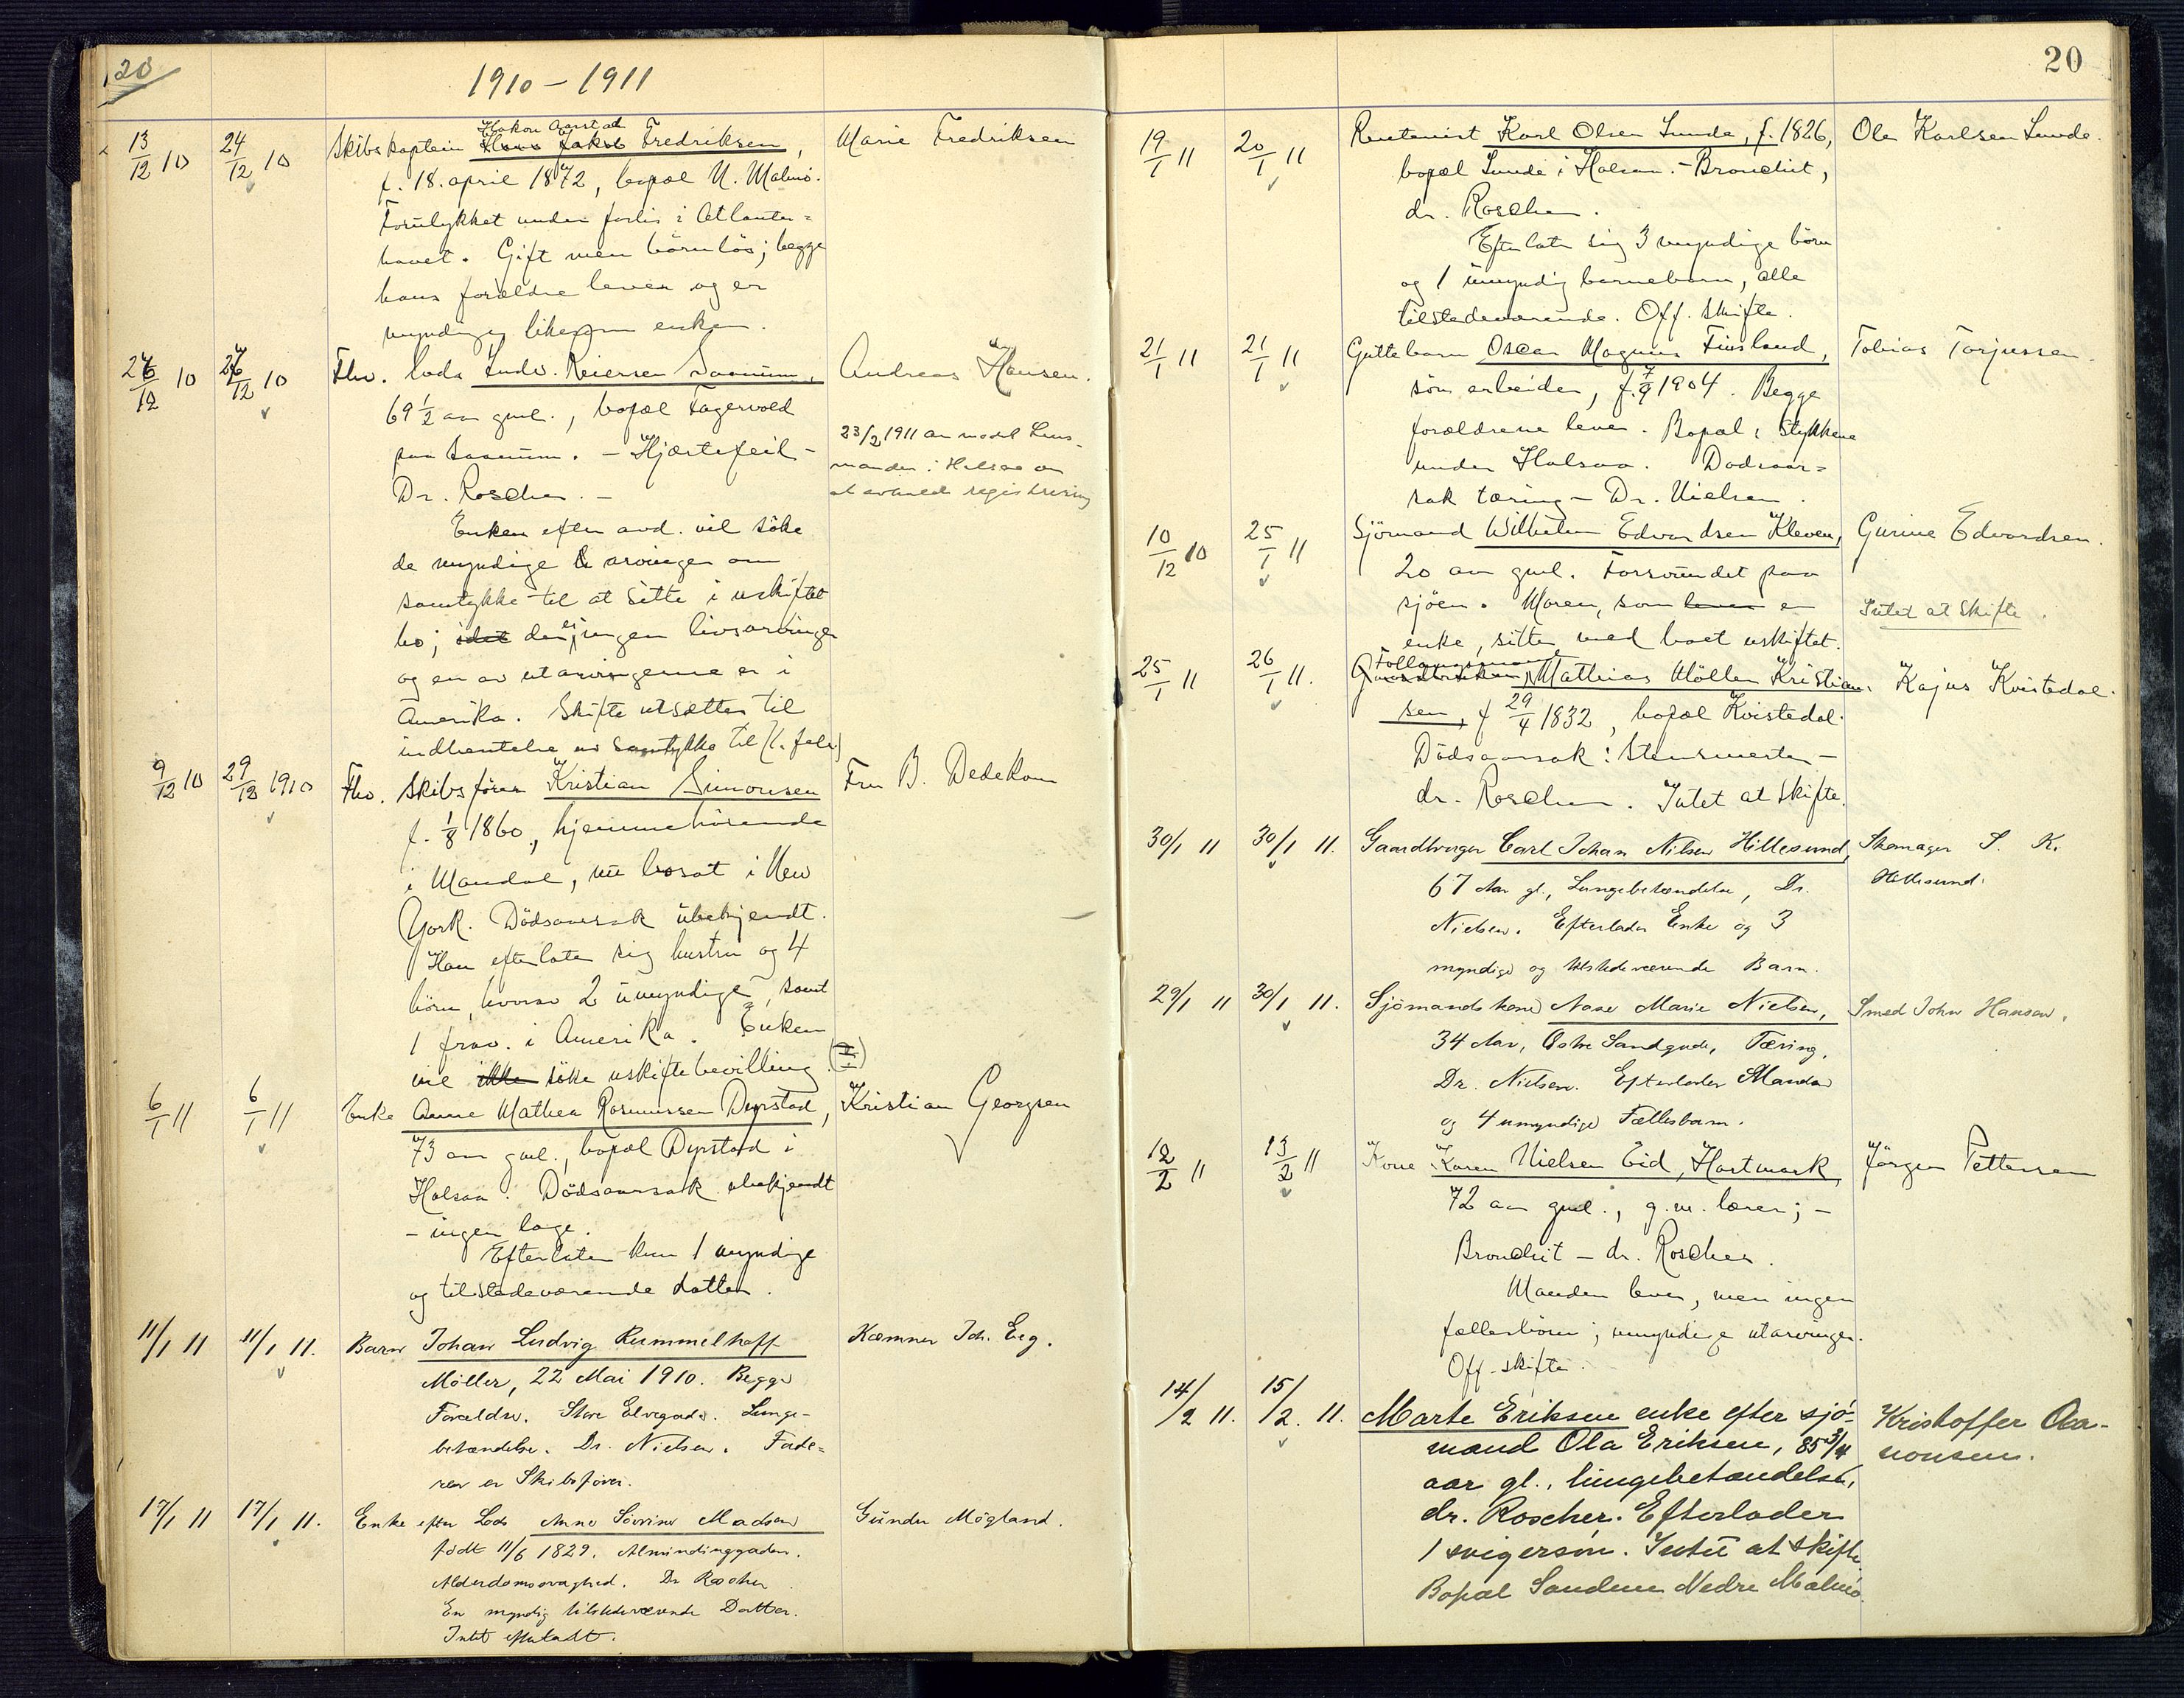 20
1910 – 1911
13/12 10 24/12 10 Skibskaptein Hans Jakob Fredriksen, Marie Fredriksen
Hakon Aanstad
f. 18. april 1872, bopæl N. Malmö.
Forulykket under forlis i Atlanter=
havet. Gift men börnlös; begge
hans forældre lever og er
myndig likesom enken.
27/12 10 27/12 10 Fhv. lods Ludv. Reiersen Saanum, Andreas Hansen.
69 1/2 aar gml., bopæl Fagervold
paa Saanum. – Hjærtefeil –
Dr. Roscher. –
23/2 1911 anmodet Lens-
manden i Halsaa om
at avholde registrering
Enken efter avd. vil söke
de myndige arvinger om
samtykke til at sitte i uskiftet
bo; idet der ei ingen livsarvinger
og en av utarvingerne er i
Amerika. Skifte utsættes til
indhentelse av samtykke til (1. febr)
9/12 10 29/12 1910 Fhv. Skibsförer Kristian Simonsen Fru B. Dedekam
f. 1/8 1860, hjemmehörende
i Mandal, nu bosat i New
York. Dödsaarsak ubekjendt.
Han efterlater sig hustru og 4
börn, hvorav 2 umyndige, samt
1 frav. i Amerika. Enken
vil ikke söke uskiftebevilling.
6/1 11 6/1 11 Enke Anne Mathea Rasmussen Dyrstad, Kristian Georgsen
73 aar gml., bopæl Dyrstad i
Halsaa. Dödsaarsak ubekjendt
– ingen læge.
Efterlater kun 1 myndige
og tilstedeværende datter.
11/1 11 11/1 11. Barn Johan Ludvig Rummelhoff Kæmner Joh. Eeg.
Møller, 22 Mai 1910. Begge
Forældre. Store Elvegade. Lunge-
betændelse. Dr. Nielsen. Fade=
ren er Skibsfører.
17/1 11 17/1 11. Enke efter Lods Anne Sövrine Madsen Gunder Mögland.
født 11/6 1829. Almindinggaden.
Alderdomssvaghed. Dr Roscher
En myndig tilstedeværende Datter.
Intet efterladt.
20
19/1 11 20/1 11 Rentenist Karl Olsen Lunde, f. 1826, Ola Karlsen Lunde.
bopæl Lunde i Halsaa. – Bronchit,
dr. Roscher.
Efterlater sig 3 myndige börn
og 1 umyndig barnebarn, alle
tilstedeværende. Off. skifte.
21/1 11 21/1 11 Guttebarn Oscar Magnus Finsland, Tobias Torjussen.
sön arbeider, f. 7/9 1904. Begge
forældrene lever. Bopæl: Stykkene
under Halsaa. Dödsaar=
sak tæring – Dr. Nielsen.
10/12 10 25/1 11 Sjömand Wilhelm Edvardsen Kleven, Gurine Edvardsen.
20 aar gml. Forsvundet paa
sjöen. Moren, som lever er
enke, sitter med boet uskiftet.
Intet at skifte.
25/1 11 26/1 11. Gaardbruker, Mathias Möller Kristian- Kajus Kvistedal.
Føllaugsmand
sen, f 29/4 1832, bopæl Kvistedal.
Dödsaarsak: Stensmerter –
dr. Roscher. Intet at skifte.
30/1 11 30/1 11. Gaardbruger Carl Johan Nilsen Hillesund, Skomager S. K.
Hillesund.
67 Aar gl., Lungebetændelse, Dr.
Nielsen. Efterlader Enke og 3
myndige og tilstedeværende Barn.
29/1 11 30/1 11. Sjömandskone Aase Marie Nielsen, Smed John Hansen.
34 Aar, Östre Sandgade, Tæring,
Dr. Nielsen. Efterlader Mandn
og 4 umyndige Fællesbarn.
12/2 11 13/2 11 Kone Karen Nielsen Eid, Hartmark, Jörgen Pettersen
72 aar gml., g.m. lærer; –
Bronchit – dr. Roscher.
Manden lever, men ingen
fællesbörn; umyndige utarvinger.
Off. skifte.
14/2 11. 15/2. 11. Marte Eriksen enke efter sjö- Kristoffer Aa-
nonsen.
mand Ola Eriksen, 85 3/4
aar gl., lungebetændelse,
dr. Roscher. Efterlader
1 svigersøn. Intet at skifte
Bopæl Sandnes Nedre Malmö.